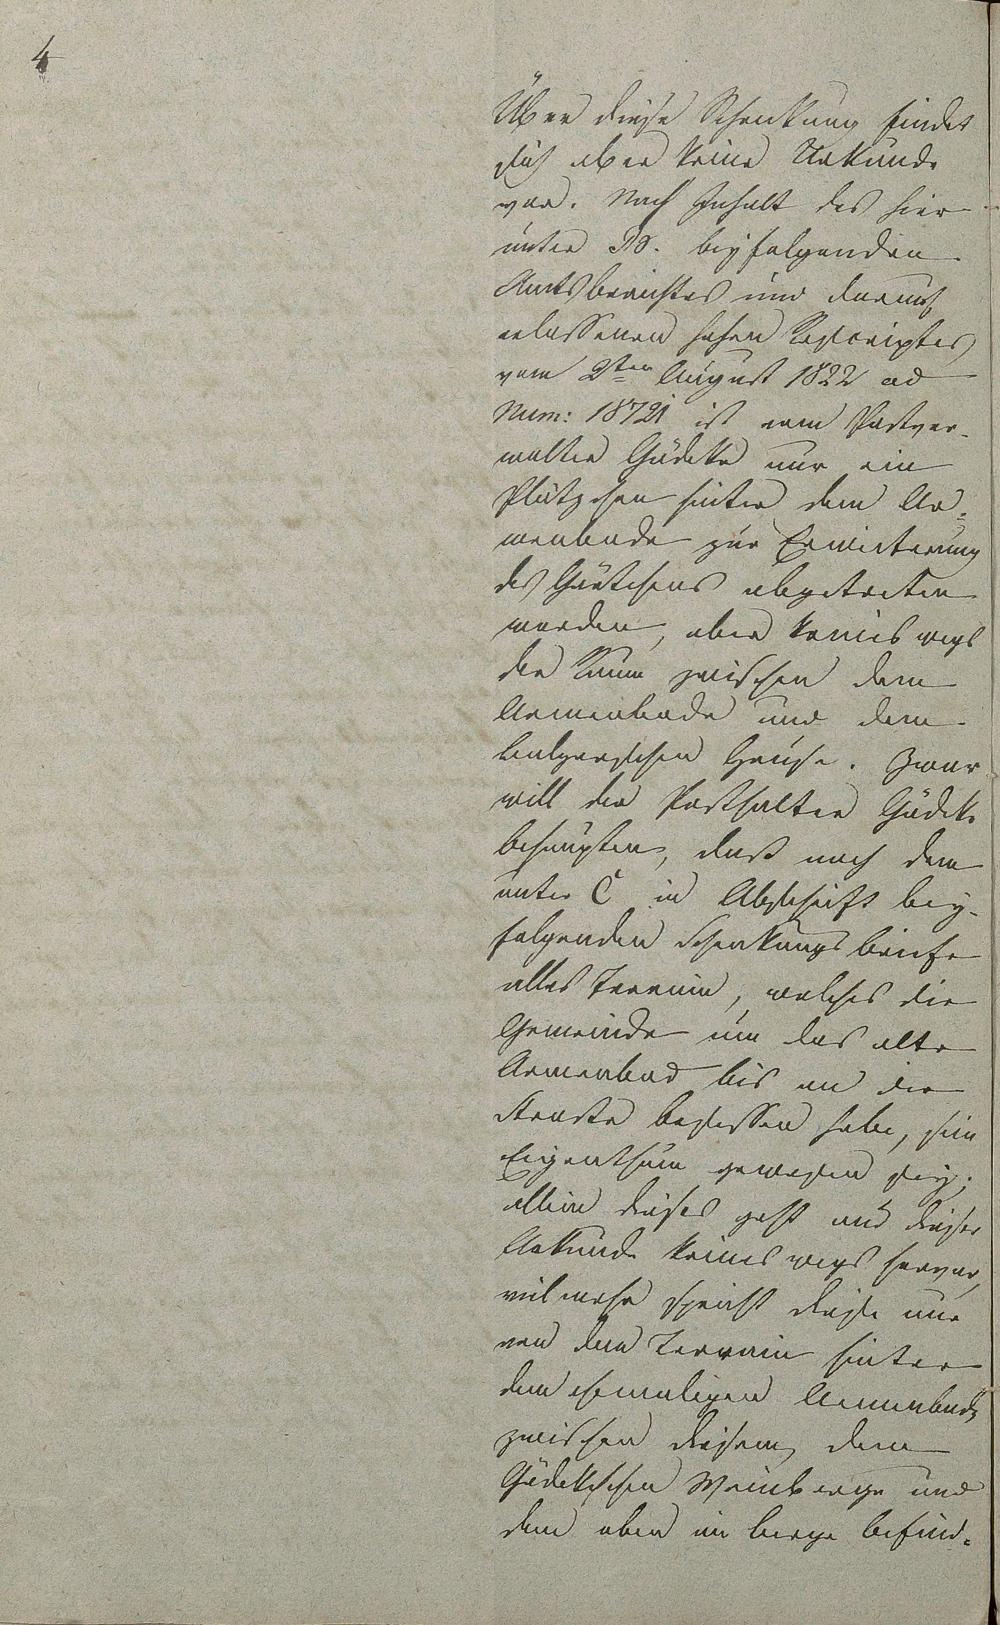 4
Über diese Schenkung findet
sich aber keine Urkunde
vor. Nach Inhalt des hier
unter B. beyfolgenden
Amtsberichtes und darauf
erlassenen hohen Rescriptes
vom 2ten August 1822 ad
Num: 18721 ist dem Postver-
walter Gödeke nur ein
Plätzchen hinter dem Ar-
menbade zur Erweiterung
des Gärtchens abgetreten
worden, aber keines wegs
der Raum zwischen dem
Armenbade und dem
Hause. Zwar
will der Posthalter Gödeke
behaupten, daß nach dem
unter C in Abschrift bey-
folgenden Schenkungsbriefe
alles Terrain, welches die
Gemeinde um das alte
Armenbad bis an die
Straße besessen habe, sein
Eigenthum gewesen sey;
allein dieses geht aus dieser
Urkunde keines wegs hervor,
vielmehr spricht diese nur
von dem Terrain hinter
dem ehemaligen Armenbade
zwischen diesem, dem
Gödekeschen Weinberge und
dem oben im Berge befind-